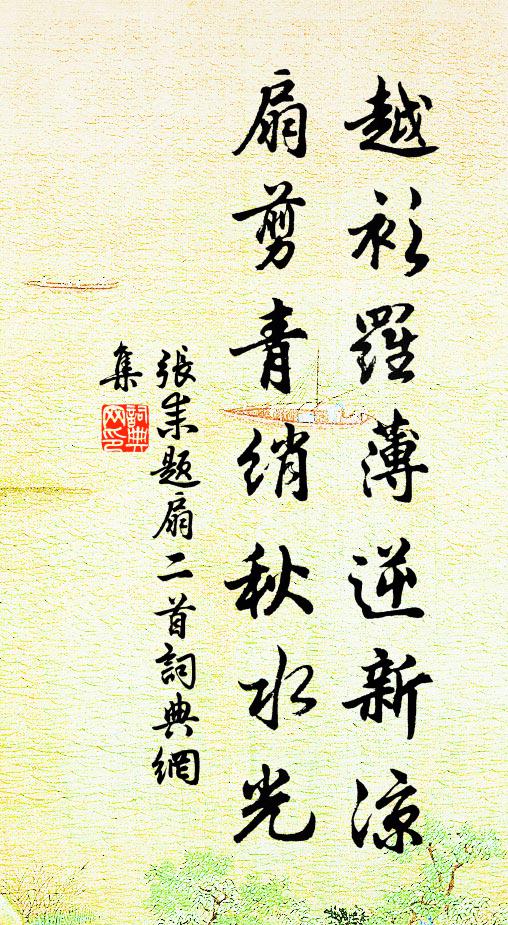 越衫羅薄逆新涼
扇剪青綃秋水光
張耒題扇二首詞典網
集
詞典
网印